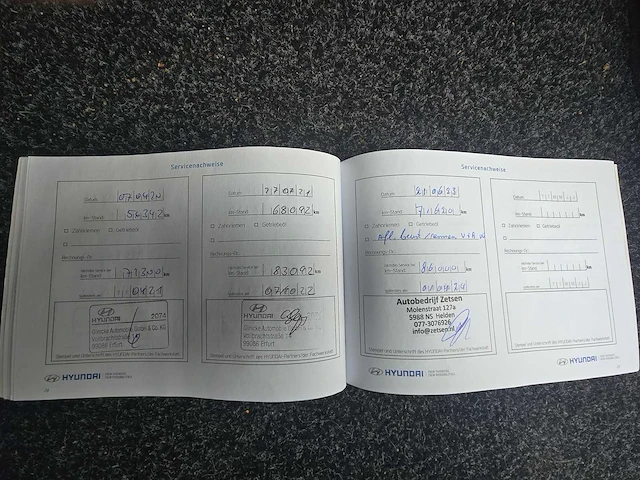 Servicenachweise
Datum 070420
km-Stand 56342 km
Zahnriemen Getriebeöl
Rechnungs-Nr.
Nächster Service bei
km-Stand km
Spätestens am 0421
HYUNDAI 2074
Glinicke Automobile GmbH & Co. KG
99086 Erfurt
Stempel und Unterschrift des HYUNDAI-Partners/der Fachwerkstatt
HYUNDAI NEW THINKING. NEW POSSIBILITIES.
Datum
km-Stand 68092 km
Zahnriemen Getriebeöl
Rechnungs-Nr.
Nächster Service bei
km-Stand 83092 km
Spätestens am 0722
HYUNDAI 2074
Glinicke Automobile GmbH & Co. KG
99086 Erfurt
Stempel und Unterschrift des HYUNDAI-Partners/der Fachwerkstatt
Servicenachweise
Datum 210623
km-Stand 71620 km
Zahnriemen Getriebeöl
Rechnungs-Nr.
Nächster Service bei
km-Stand 86000 km
Spätestens am
Autobedrijf Zetsen
Molenstraat 127a
5988 NS Helden
077-3076926
info@zetsen.nl
Stempel und Unterschrift des HYUNDAI-Partners/der Fachwerkstatt
HYUNDAI NEW THINKING. NEW POSSIBILITIES.
Datum
km-Stand km
Zahnriemen Getriebeöl
Rechnungs-Nr.
Nächster Service bei
km-Stand km
Spätestens am
Stempel und Unterschrift des HYUNDAI-Partners/der Fachwerkstatt
HYUNDAI NEW THINKING. NEW POSSIBILITIES.